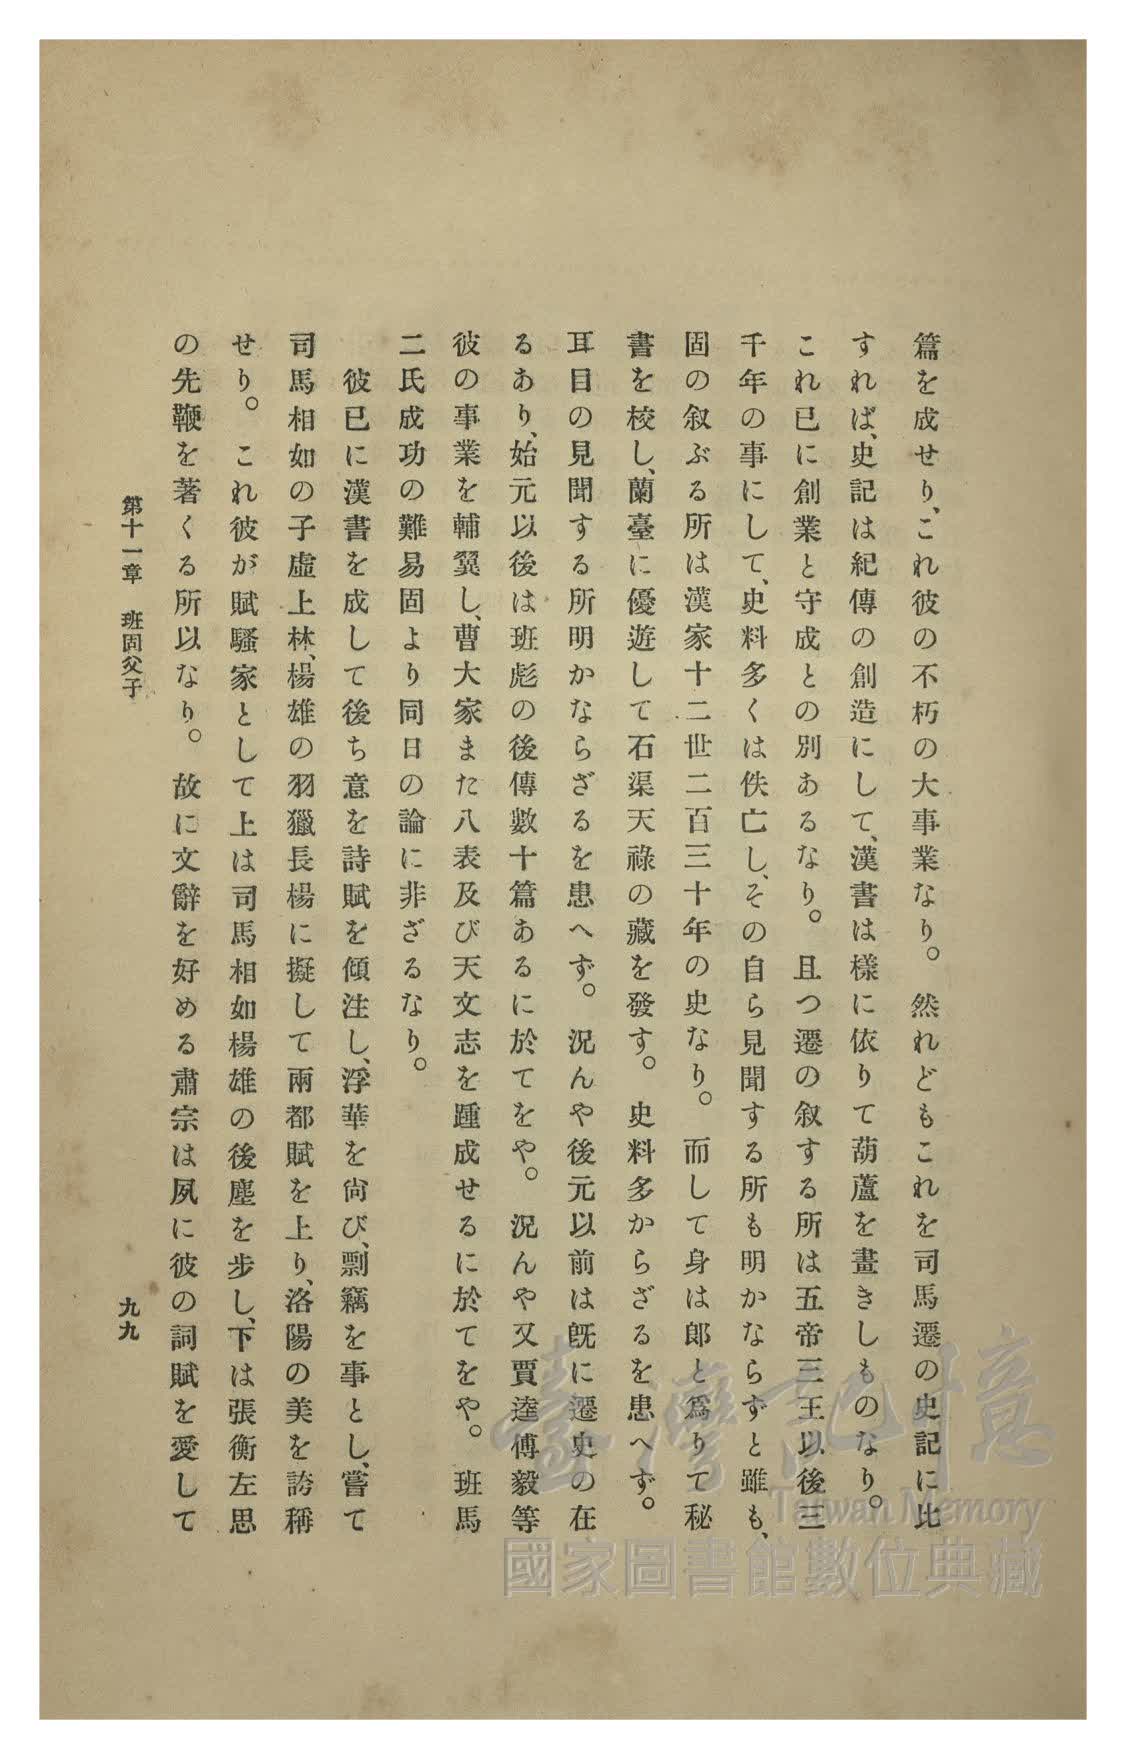 篇を成せり、これ彼の不朽の大事業なり。然れどもこれを司馬遷の史記に比
すれば、史記は紀傳の創造にして、漢書は樣に依りて葫蘆を畫きしものなり。
これ已に創業と守成との別あるなり。且つ遷の叙する所は五帝三王以後三
千年の事にして、史料多くは佚亡し、その自ら見聞する所も明かならずと雖も、
固の叙ぶる所は漢家十二世二百三十年の史なり。而して身は郎と爲りて秘
書を校し、蘭臺に優遊して石渠天祿の藏を發す。史料多からざるを患へず。
耳目の見聞する所明かならざるを患へず。況んや後元以前は旣に遷史の在
るあり、始元以後は班彪の後傳數十篇あるに於てをや。況んや又賈逵傅毅等
彼の事業を輔翼し、曹大家また八表及び天文志を踵成せるに於てをや。班馬
二氏成功の難易固より同日の論に非ざるなり。
彼已に漢書を成して後ち意を詩賦を傾注し、浮華を尙び、剽竊を事とし、嘗て
司馬相如の子虛上林、楊雄の羽獵長楊に擬して兩都賦を上り、洛陽の美を誇稱
せり。これ彼が賦騷家として上は司馬相如楊雄の後塵を步し、下は張衡左思
の先鞭を著くる所以なり。故に文辭を好める肅宗は夙に彼の詞賦を愛して
第十一章 班固父子
九九
臺灣記憶
Taiwan Memory
國家圖書館數位典藏